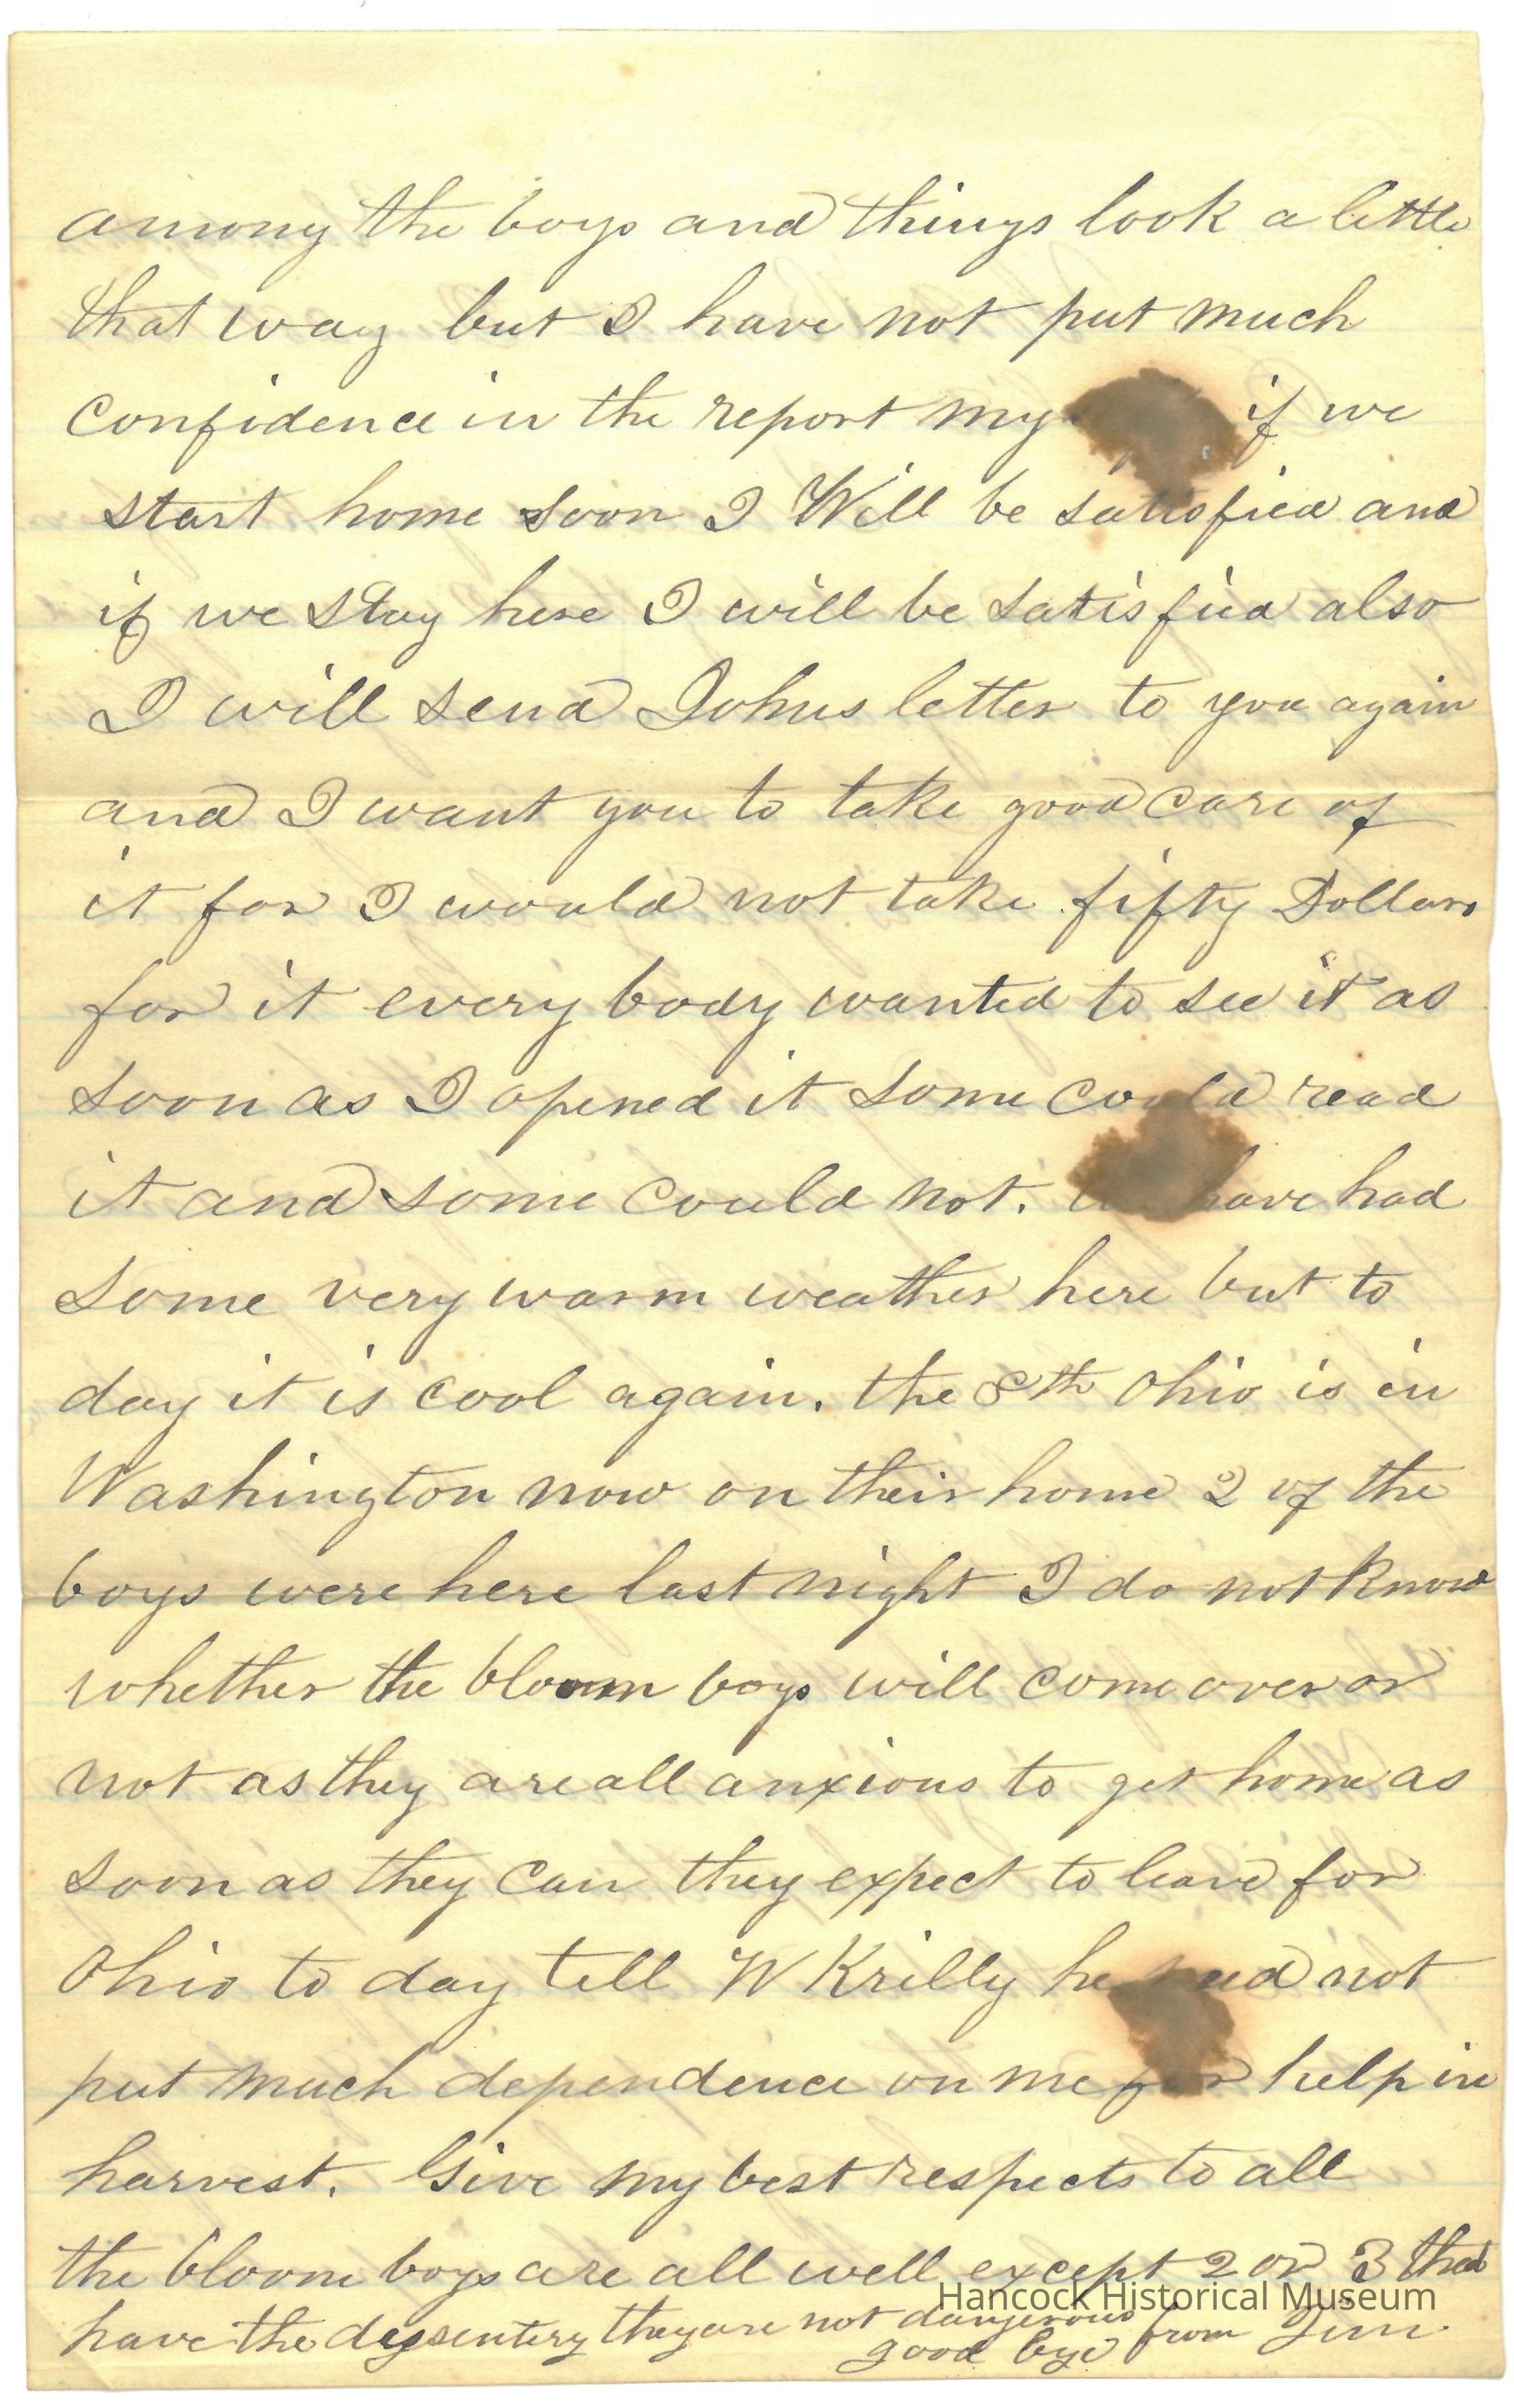 among the boys and things look a little
that way but I have not put much
confidence in the report my if we
start home soon I Will be satisfied and
if we stay here I will be satisfied also
I will send Johns letter to you again
and I want you to take good care of
it for I would not take fifty Dollars
for it every body wanted to see it as
soon as I opened it some could read
it and some could not. have had
some very warm weather here but to
day it is cool again. the 8th Ohio is in
Washington now on their home 2 of the
boys were here last night I do not know
whether the bloom boys will come over or
not as they are all anxious to get home as
soon as they can they expect to leave for
Ohio to day tell W Krilly he need not
put much dependence on me for help in
harvest. Give my best respects to all
the bloom boys are all well except 2 or 3 that
have the dyssentery they are not dangerous
good bye from Jim
Hancock Historical Museum